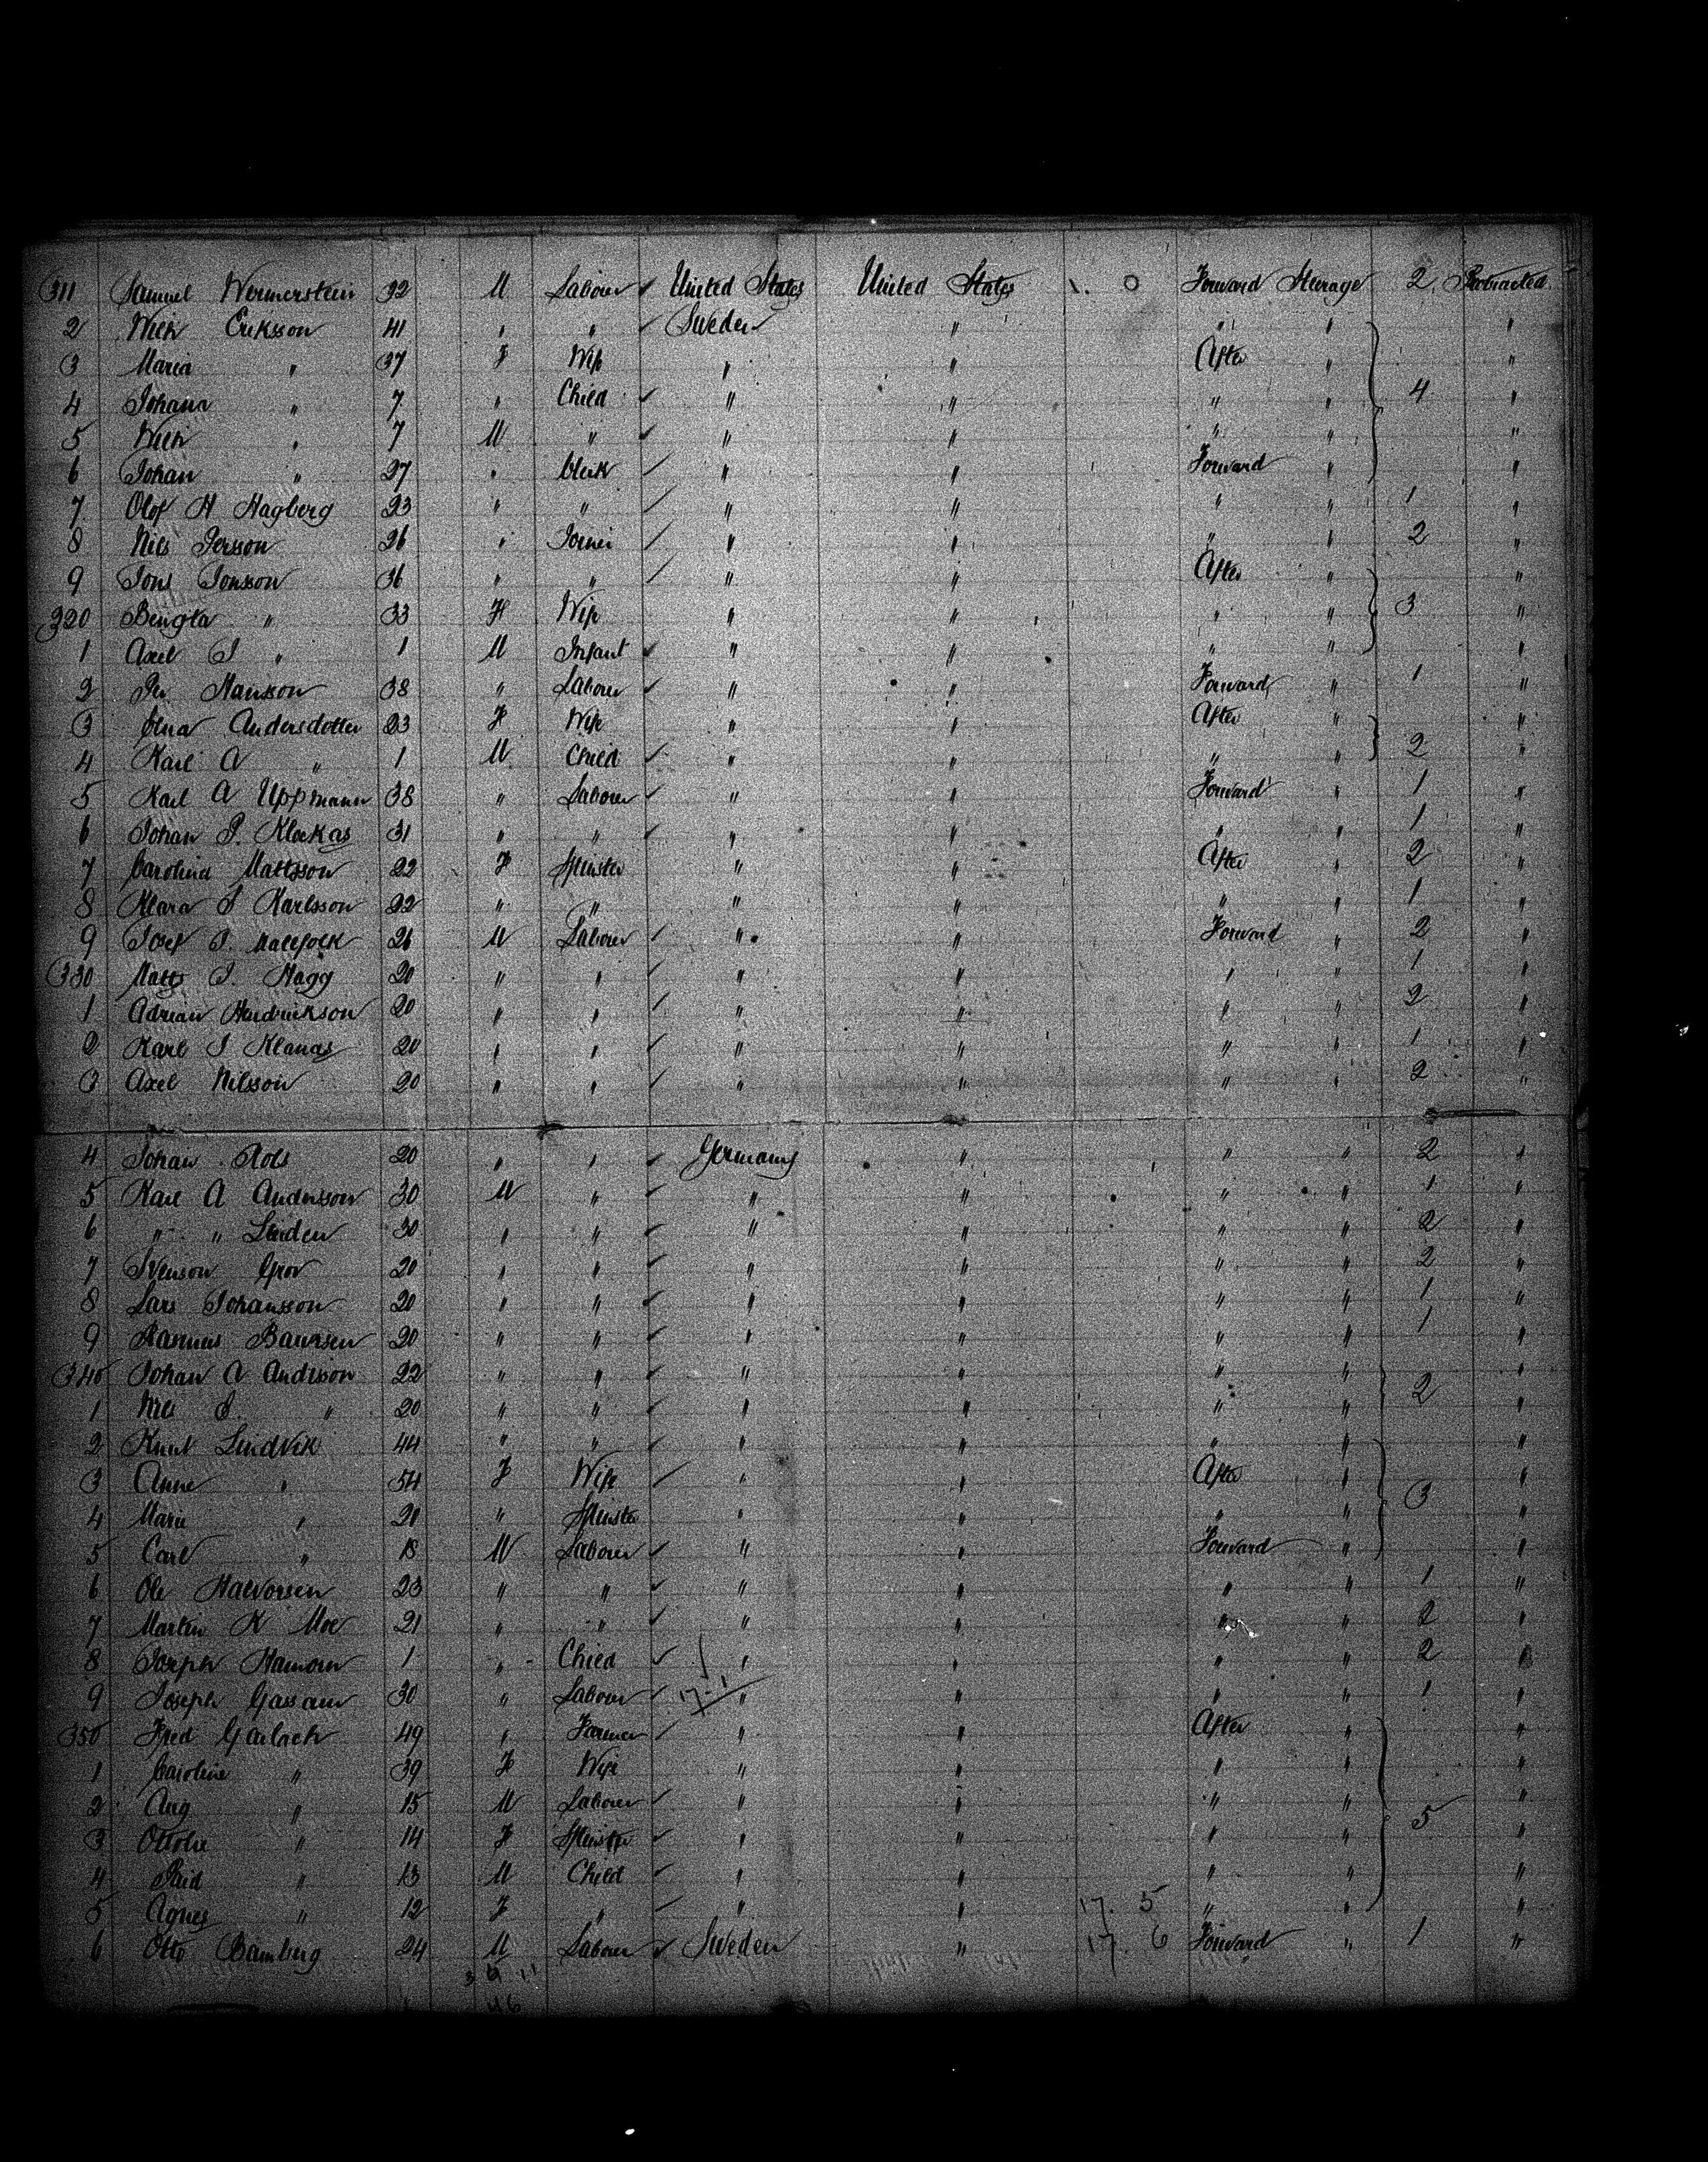 311 Samuel Wermerstein 32 M Laborer ✓ United States United States Forward Steerage 2 Protracted
2 Erikson 41 " " ✓ Sweden " " " "
3 Maria " 37 F Wife " " After " "
4 Johana " 7 " Child ✓ " " " " 4 "
5 " 7 M " ✓ " " " " "
6 Johan " 27 " Clerk ✓ " " Forward " "
7 Olof H Hagberg 23 " " ✓ " " " " 1 "
8 Nils Persson 26 " Joiner ✓ " " " " 2 "
9 Jons Jonsson 36 " " ✓ " " After " "
320 Bengta " 33 F Wife " " " " 3 "
1 Axel J " 1 M Infant ✓ " " " " "
2 Per Hansson 38 " Laborer ✓ " " Forward " 1 "
3 Elna Andersdotter 23 F Wife " " After " "
4 Karl A " 1 M Child ✓ " " " " 2 "
5 Karl A Uppmann 38 " Laborer ✓ " " Forward " 1 "
6 Johan P. Klockas 31 " " ✓ " " " " 1 "
7 Carolina Mattsson 22 F Spinster " " After " 2 "
8 Klara J Karlsson 22 " " " " " " 1 "
9 Josef J. 26 M Laborer ✓ " " Forward " 2 "
330 Matts J. Hagg 20 " " ✓ " " " " 1 "
1 Adrian Hendrickson 20 " " ✓ " " " " 2 "
2 Karl J Klanas 20 " " ✓ " " " " 1 "
3 Axel Nilsson 20 " " ✓ " " " " 2 "
4 Johan 20 " " ✓ Germany " " " 2 "
5 Karl A Andersson 30 M " ✓ " " " " 1 "
6 " " Linden 30 " " ✓ " " " " 2 "
7 Svenson 20 " " ✓ " " " " 2 "
8 Lars Johansson 20 " " ✓ " " " " 1 "
9 Rasmus 20 " " ✓ " " " " 1 "
340 Johan A Andersson 22 " " ✓ " " " " "
1 Nils J. " 20 " " ✓ " " " " 2 "
2 Knut Lindvik 44 " " ✓ " " " " "
3 Anne " 54 F Wife ✓ " " After " "
4 Marie " 21 " Spinster " " " " 3 "
5 Carl " 18 M Laborer ✓ " " Forward " "
6 Ole Halvorsen 23 " " ✓ " " " " 1 "
7 Martin K Moe 21 " " ✓ " " " " 2 "
8 Joseph 1 " Child ✓ " " " " 2 "
9 Joseph 30 " Laborer ✓ 17-1 " " " " 1 "
350 Fred Garbach 49 " Farmer ✓ " " After " "
1 Caroline " 39 F Wife " " " " "
2 Aug " 15 M Laborer ✓ " " " " 5 "
3 Ottolie " 14 F Spinster ✓ " " " " "
4 " 13 M Child ✓ " " " " "
5 Agnes " 12 F " ✓ " " 17. 5 " " "
6 Otto Bamberg 24 M Laborer ✓ Sweden " 17. 6 Forward " 1 "
46